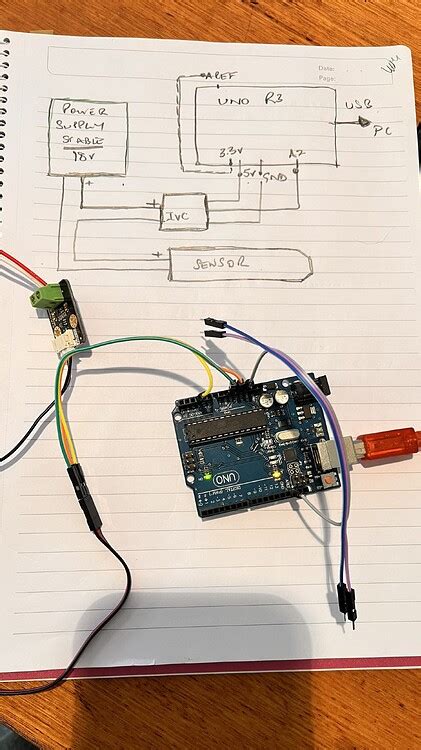 Date:
Page:
AREF
UNO R3
POWER
SUPPLY
STABLE
18V
USB
PC
3.3V
5V
GND
A2
+
+
IVC
+
SENSOR
UNO